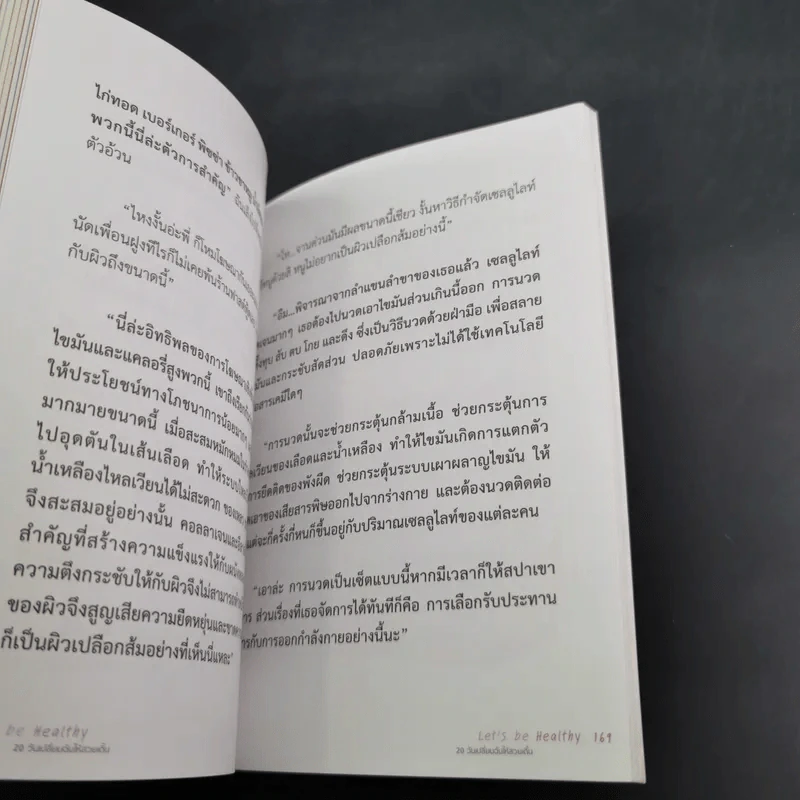 ไก่ทอด เบอร์เกอร์ พิซซ่า
พวกนี้นี่ล่ะตัวการสำคัญ"
ตัวอ้วน
"ไหงงั้นอ่ะพี่ ก็ไหมโฆษณา
นัดเพื่อนฝูงทีไรก็ไม่เคยพ้นร้านฟาสต์ฟู้ด
กับผิวถึงขนาดนี้"
"นี่ล่ะอิทธิพลของการโฆษณา
ไขมันและแคลอรี่สูงพวกนี้ เขาถึง
ให้ประโยชน์ทางโภชนาการน้อยมากๆ
มากมายขนาดนี้ เมื่อสะสมหมักหมม
ไปอุดตันในเส้นเลือด ทำให้ระบบ
น้ำเหลืองไหลเวียนได้ไม่สะดวก
จึงสะสมอยู่อย่างนั้น คอลลาเจนและ
สำคัญที่สร้างความแข็งแรงให้กับ
ความตึงกระชับให้กับผิวจึงไม่สามารถ
ของผิวจึงสูญเสียความยืดหยุ่นและ
ก็เป็นผิวเปลือกส้มอย่างที่เห็นนี่แหละ"
be Healthy
20 วันเปลี่ยนฉันให้สวยเด็น
"โห...จานด่วนมันมีผลขนาดนี้เชียว งั้นหาวิธีกำจัดเซลลูไลท์
หนูด้วยดิ หนูไม่อยากเป็นผิวเปลือกส้มอย่างนี้"
"อืม...พิจารณาจากลำแขนลำขาของเธอแล้ว เซลลูไลท์
มากๆ เธอต้องไปนวดเอาไขมันส่วนเกินนี้ออก การนวด
ทุบ สับ ตบ โกย และดึง ซึ่งเป็นวิธีนวดด้วยฝ่ามือ เพื่อสลาย
มันและกระชับสัดส่วน ปลอดภัยเพราะไม่ได้ใช้เทคโนโลยี
สารเคมีใดๆ
"การนวดนั้นจะช่วยกระตุ้นกล้ามเนื้อ ช่วยกระตุ้นการ
เวียนของเลือดและน้ำเหลือง ทำให้ไขมันเกิดการแตกตัว
การยึดติดของพังผืด ช่วยกระตุ้นระบบเผาผลาญไขมัน ให้
เอาของเสียสารพิษออกไปจากร่างกาย และต้องนวดติดต่อ
แต่จะกี่ครั้งกี่หนก็ขึ้นอยู่กับปริมาณเซลลูไลท์ของแต่ละคน
"เอาล่ะ การนวดเป็นเซ็ตแบบนี้หากมีเวลาก็ให้สปาเขา
ส่วนเรื่องที่เธอจัดการได้ทันทีก็คือ การเลือกรับประทาน
กับการออกกำลังกายอย่างนี้นะ"
Let's be Healthy 169
20 วันเปลี่ยนฉันให้สวยเด็น